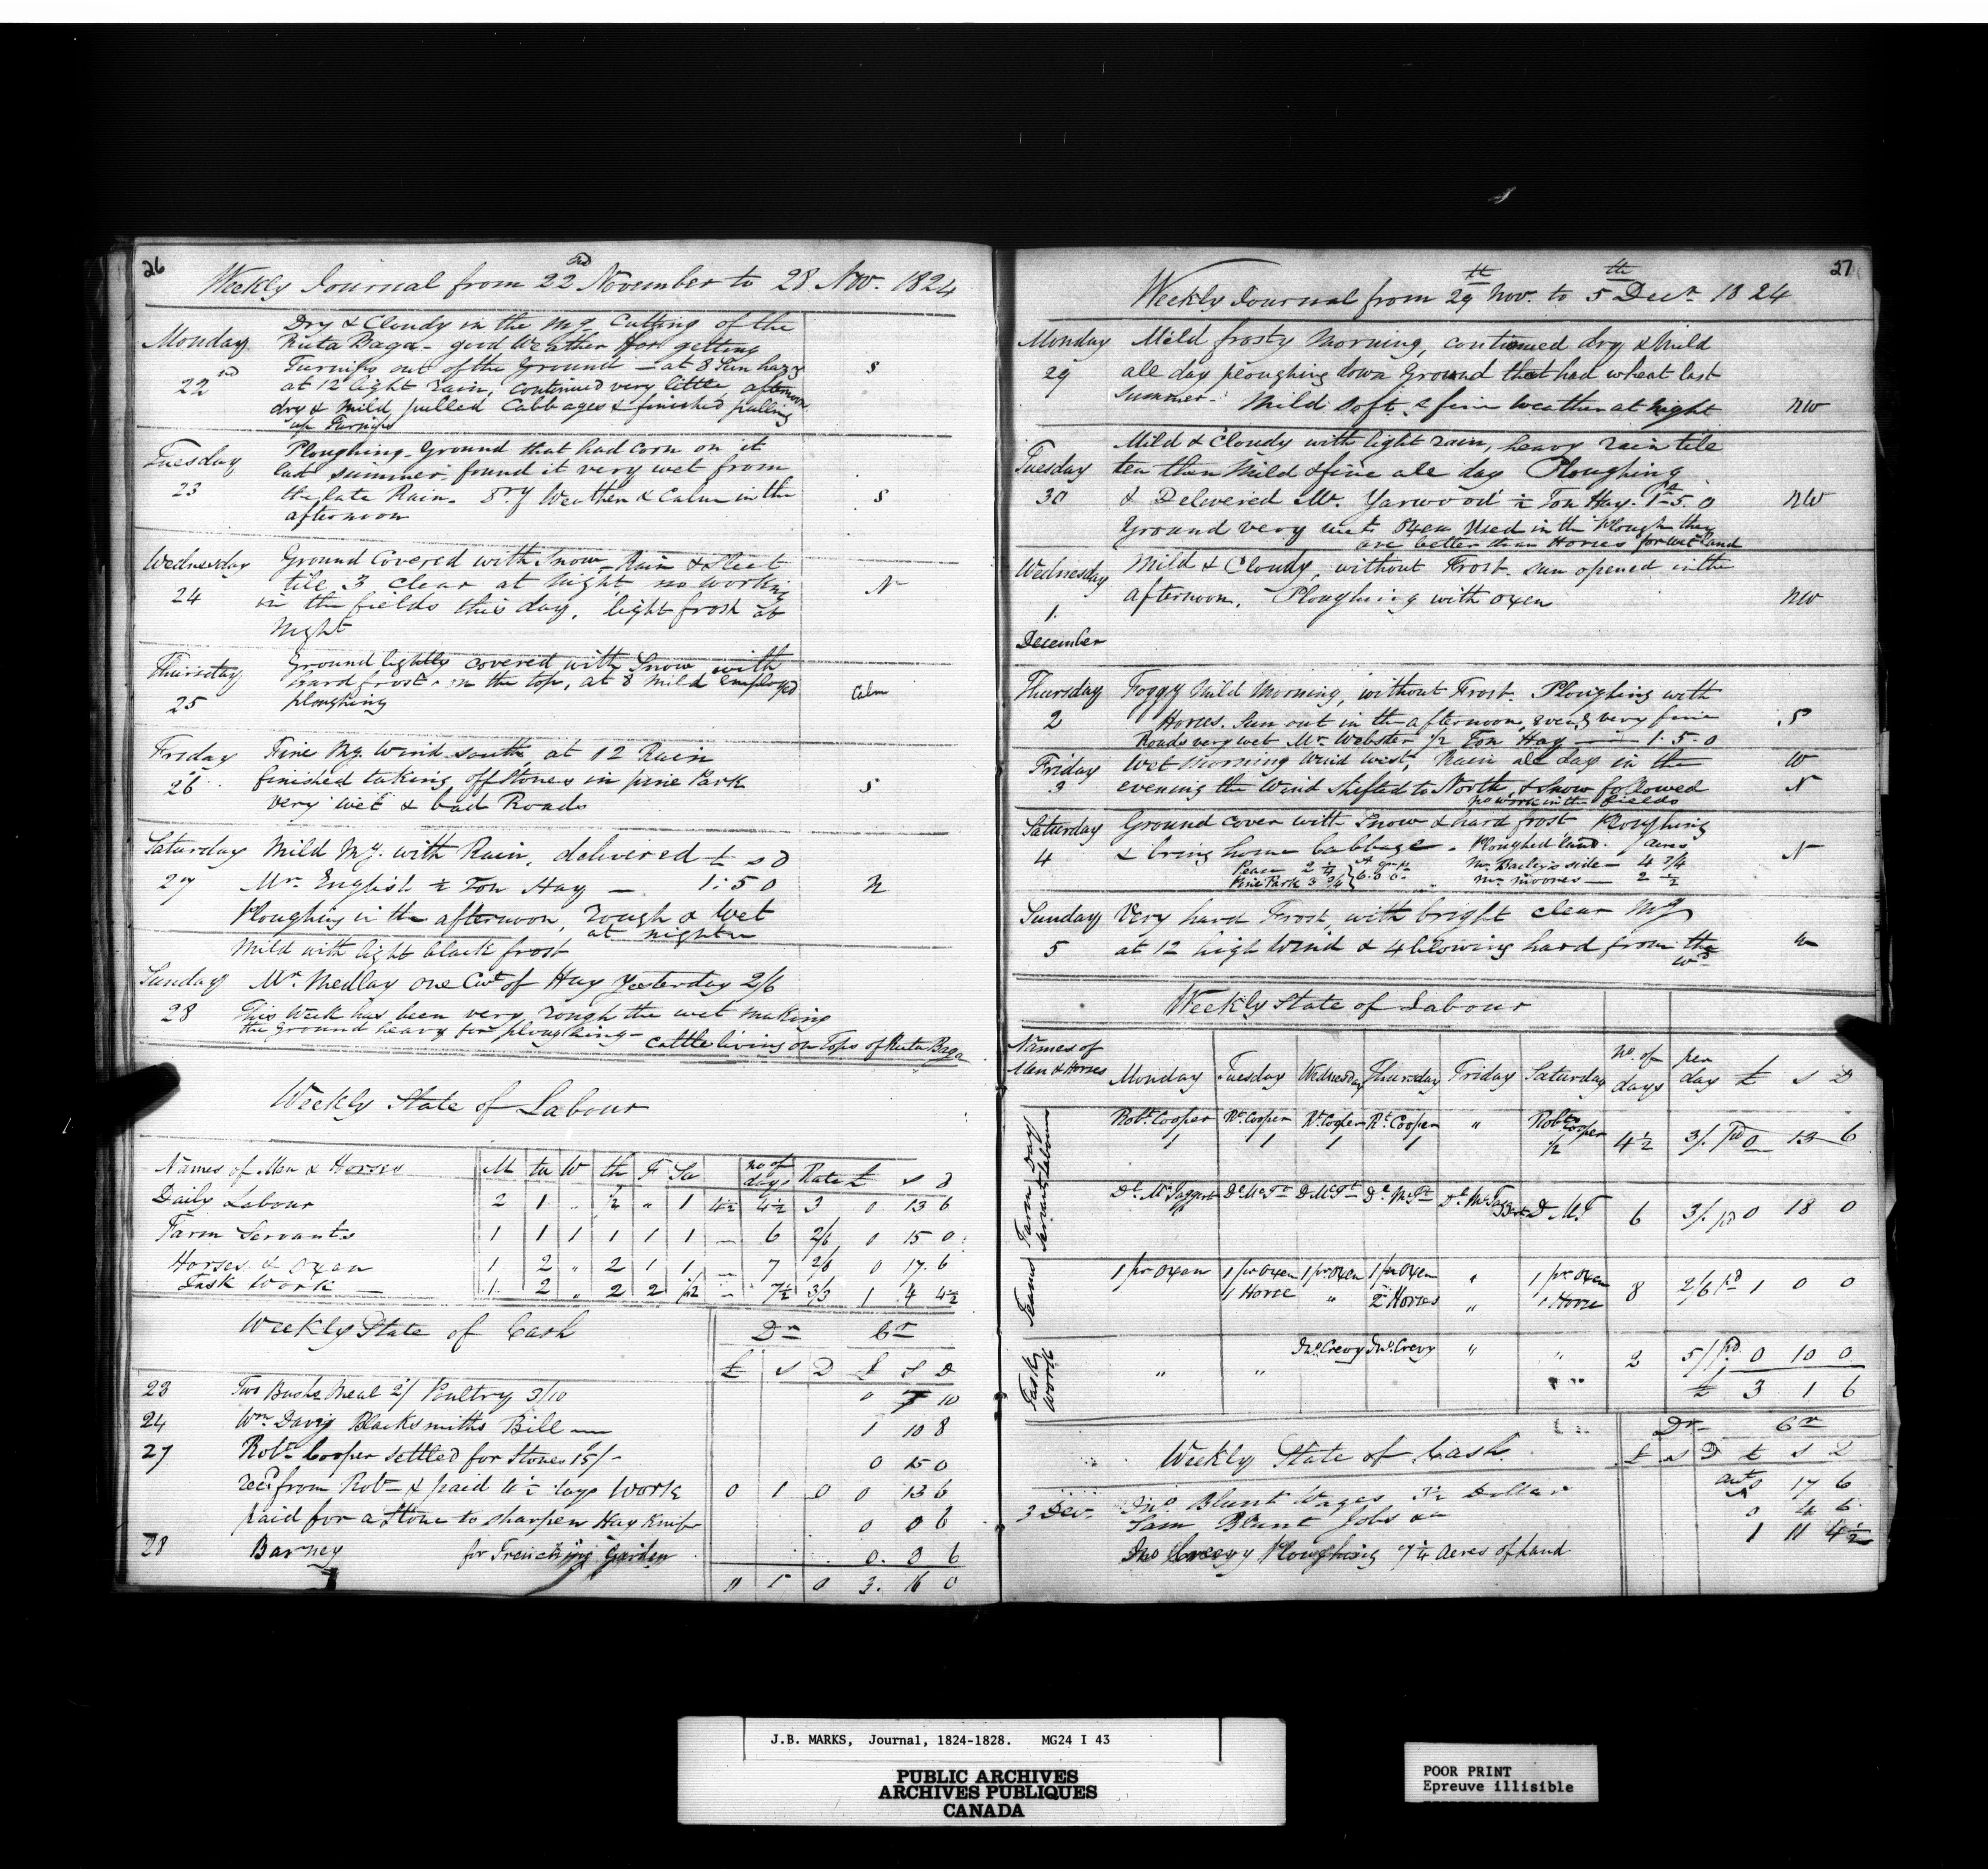 26
Weekly Journal from 22nd November to 28 Nov. 1824
Monday
22nd
Dry & Cloudy in the Mg. Cutting of the
Ruta Baga - good Weather for getting
Turnips out of the Ground - at 8 Sun hazy
at 12 light rain, continued very little, afternoon
dry & Mild, pulled Cabbages & finished pulling
up Turnips
S
Tuesday
23
Ploughing - Ground that had Corn on it
last summer - found it very wet from
the late Rain - Dry Weather & Calm in the
afternoon
S
Wednesday
24
Ground Covered with Snow - Rain & Sleet
tile 3 Clear at Night, no working
in the fields this day, light frost at
Night
N
Thursday
25
Ground lightly covered with Snow with
hard frost on the top, at 8 Mild employed
ploughing
Calm
Friday
26
Fine Mg. Wind south, at 12 Rain
finished taking off Stones in pine Park
very wet & bad Roads
S
Saturday
27
Mild Mg. with Rain, delivered £ s d
Mr. English ½ Ton Hay — 1: 5 0
Ploughing in the afternoon, rough & Wet
at night
N
Mild with light black frost
Sunday
28
Mr. Medlay one Cwt of Hay Yesterday 2/6
This Week has been very rough the wet making
the Ground heavy for ploughing -
cattle living on Tops of Ruta Baga
Weekly State of Labour
Names of Men & Horses M tu W th F Sa no of days Rate £ s d
Daily Labour 2 1 " ½ " 1 4½ 4½ 3 0 13 6
Farm Servants 1 1 1 1 1 1 — 6 2/6 0 15 0
Horses & Oxen 1 2 " 2 1 1 — 7 2/6 0 17. 6
Task Work — 1. 2 " 2 2 ½ — 7½ 3/3 1 4 4½
Weekly State of Cash Dr Cr
£ s D £ s D
23 Two Bushs Meal 2/ Poultry 3/10 0 7 10
24 Wm Davis Blacksmiths Bill — 1 10 8
27 Robt Cooper settled for Stones 15/- 0 15 0
recd from Robt & paid days Work 0 1 0 0 13 6
paid for a Stone to sharpen Hay Knife 0 0 6
28 Barney for Trenching Garden 0. 3 6
" 1 0 3. 16 0
27
Weekly Journal from 29th Nov. to 5th Decr. 1824
Monday
29
Mild frosty Morning, continued dry & Mild
all day ploughing down Ground that had wheat last
Summer - Mild soft & fine Weather at Night
NW
Tuesday
30
Mild & Cloudy with light rain, heavy rain tile
ten then Mild & fine all day Ploughing
& Delivered Mr. Yarwood ½ Ton Hay. 1 - 5. 0
Ground very wet Oxen Used in the Plough they
are better than Horses for wet Land
NW
Wednesday
1.
December
Mild & Cloudy, without Frost - sun opened in the
afternoon. Ploughing with Oxen
NW
Thursday
2
Foggy Mild Morning, without Frost. Ploughing with
Horses. Sun out in the afternoon, & very fine
Roads very wet Mr. Webster ½ Ton Hay — 1. 5. 0
S
Friday
3
Wet Morning Wind West, Rain all day in the
evening the Wind shifted to North, & Snow followed
no work in the fields
W
N
Saturday
4
Ground cover with Snow & hard frost Ploughing
& bring home Cabbage - Ploughed land. acres
Peas — 2¼ Mr. Bailey's side — 4¾
Pine Park 3¾ 6. 0 0 Mr. Moores — 2½
N
Sunday
5
Very hard Frost, with bright clear Mg
at 12 high Wind & 4 blowing hard from the
Wd
W
Weekly State of Labour
Names of Men & Horses Monday Tuesday Wednesday Thursday Friday Saturday no. of days per day £ s D
Day Labourer Robt Cooper 1 Rt. Cooper 1 Rt. Cooper 1 Rt. Cooper 1 " Robt Cooper ½ 4½ 3/. pd 0 13 6
Farm Servant Dl McTaggart Dl McTt D McTt Dl McTt Dl McTaggart D McT 6 3/. pd 0 18 0
Teams 1 pr Oxen 1 pr Oxen 1 Horse 1 pr Oxen " 1 pr Oxen 2 Horses " 1 pr. Oxen 1 Horse 8 2/6 pd 1 0 0
Task Work " " Jno. Crevy Jno. Crevy " " 2 5/ pd. 0 10 0
£ 3 1 6
Weekly State of Cash. Dr Cr
£ s D £ s D
3 Dec. Jno. Blunt Wages 3½ Dollar 0 17 6
Sam Blunt Jobs 0 4 6
Jno Crevy Ploughing 7¼ acres of land 1 11 4½
J.B. MARKS, Journal, 1824-1828. MG24 I 43
PUBLIC ARCHIVES
ARCHIVES PUBLIQUES
CANADA
POOR PRINT
Epreuve illisible